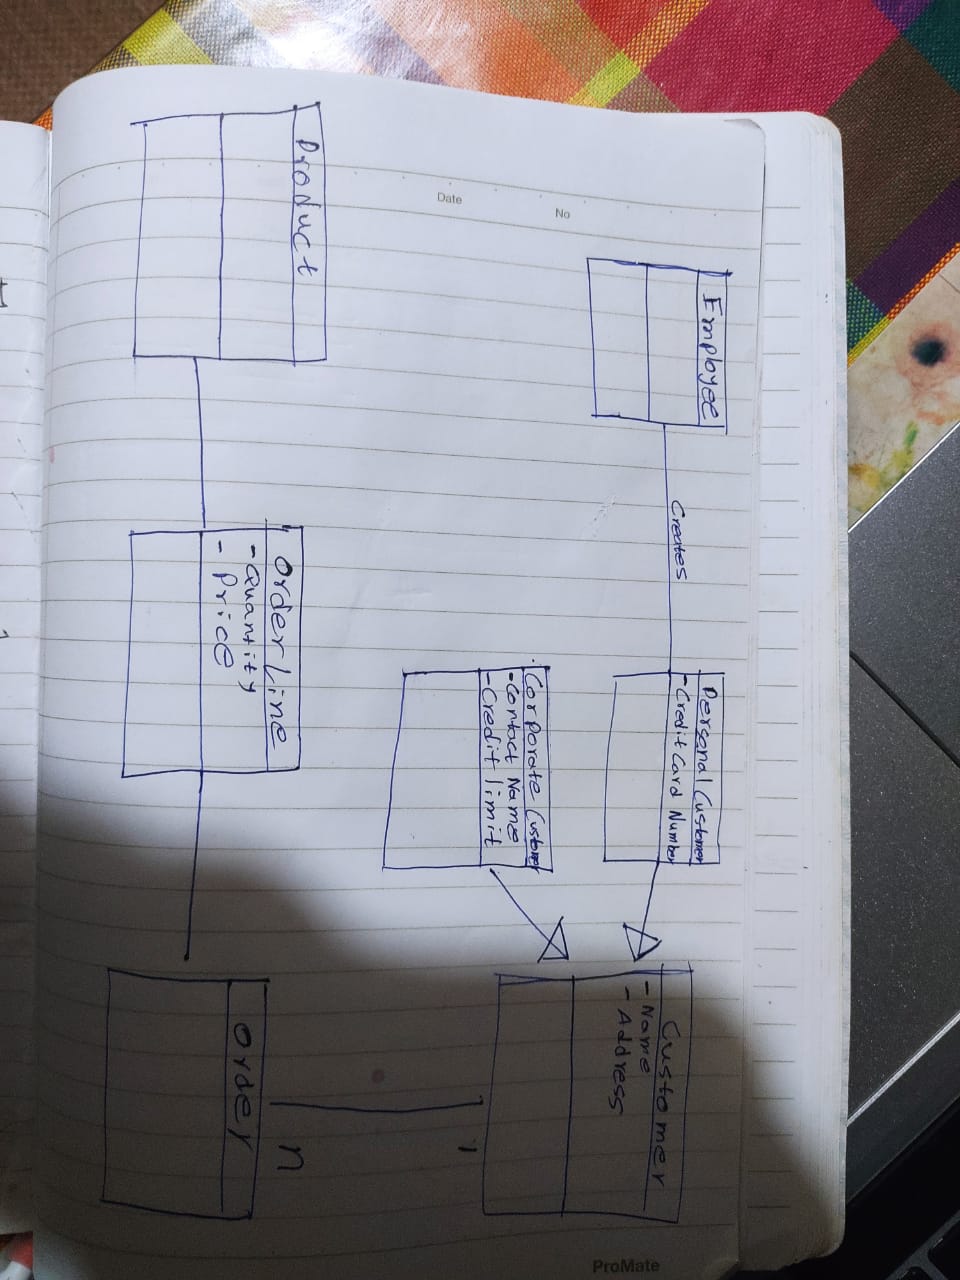 Employee
Creates
Personal Customer
- Credit Card Number
Customer
- Name
- Address
Corporate Customer
- Contact Name
- Credit limit
1
n
Product
Order Line
- Quantity
- Price
Order
No
Date
ProMate